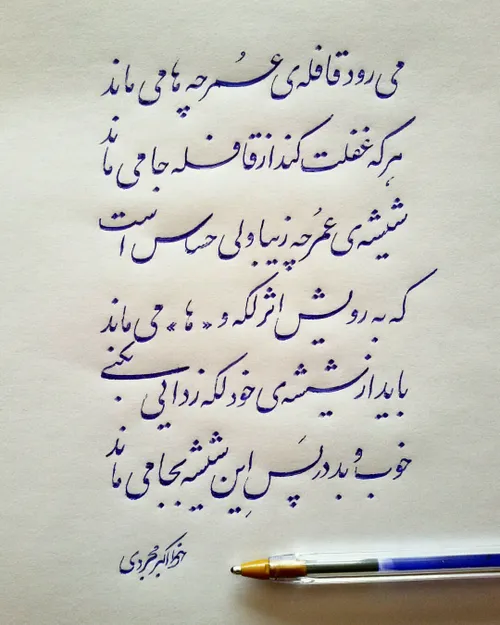 می رود قافله‌ی عُمر چه ها می ماند
هر که غفلت کند از قافله جا می ماند
شیشه‌ی عمُر چه زیبا ولی حساس است
که به رویش اثر لکه و «ها» می ماند
باید از شیشه‌ی خود لکه زدایی بکنی
خوب و بد در پَسِ این شیشه بجا می ماند
اکبر